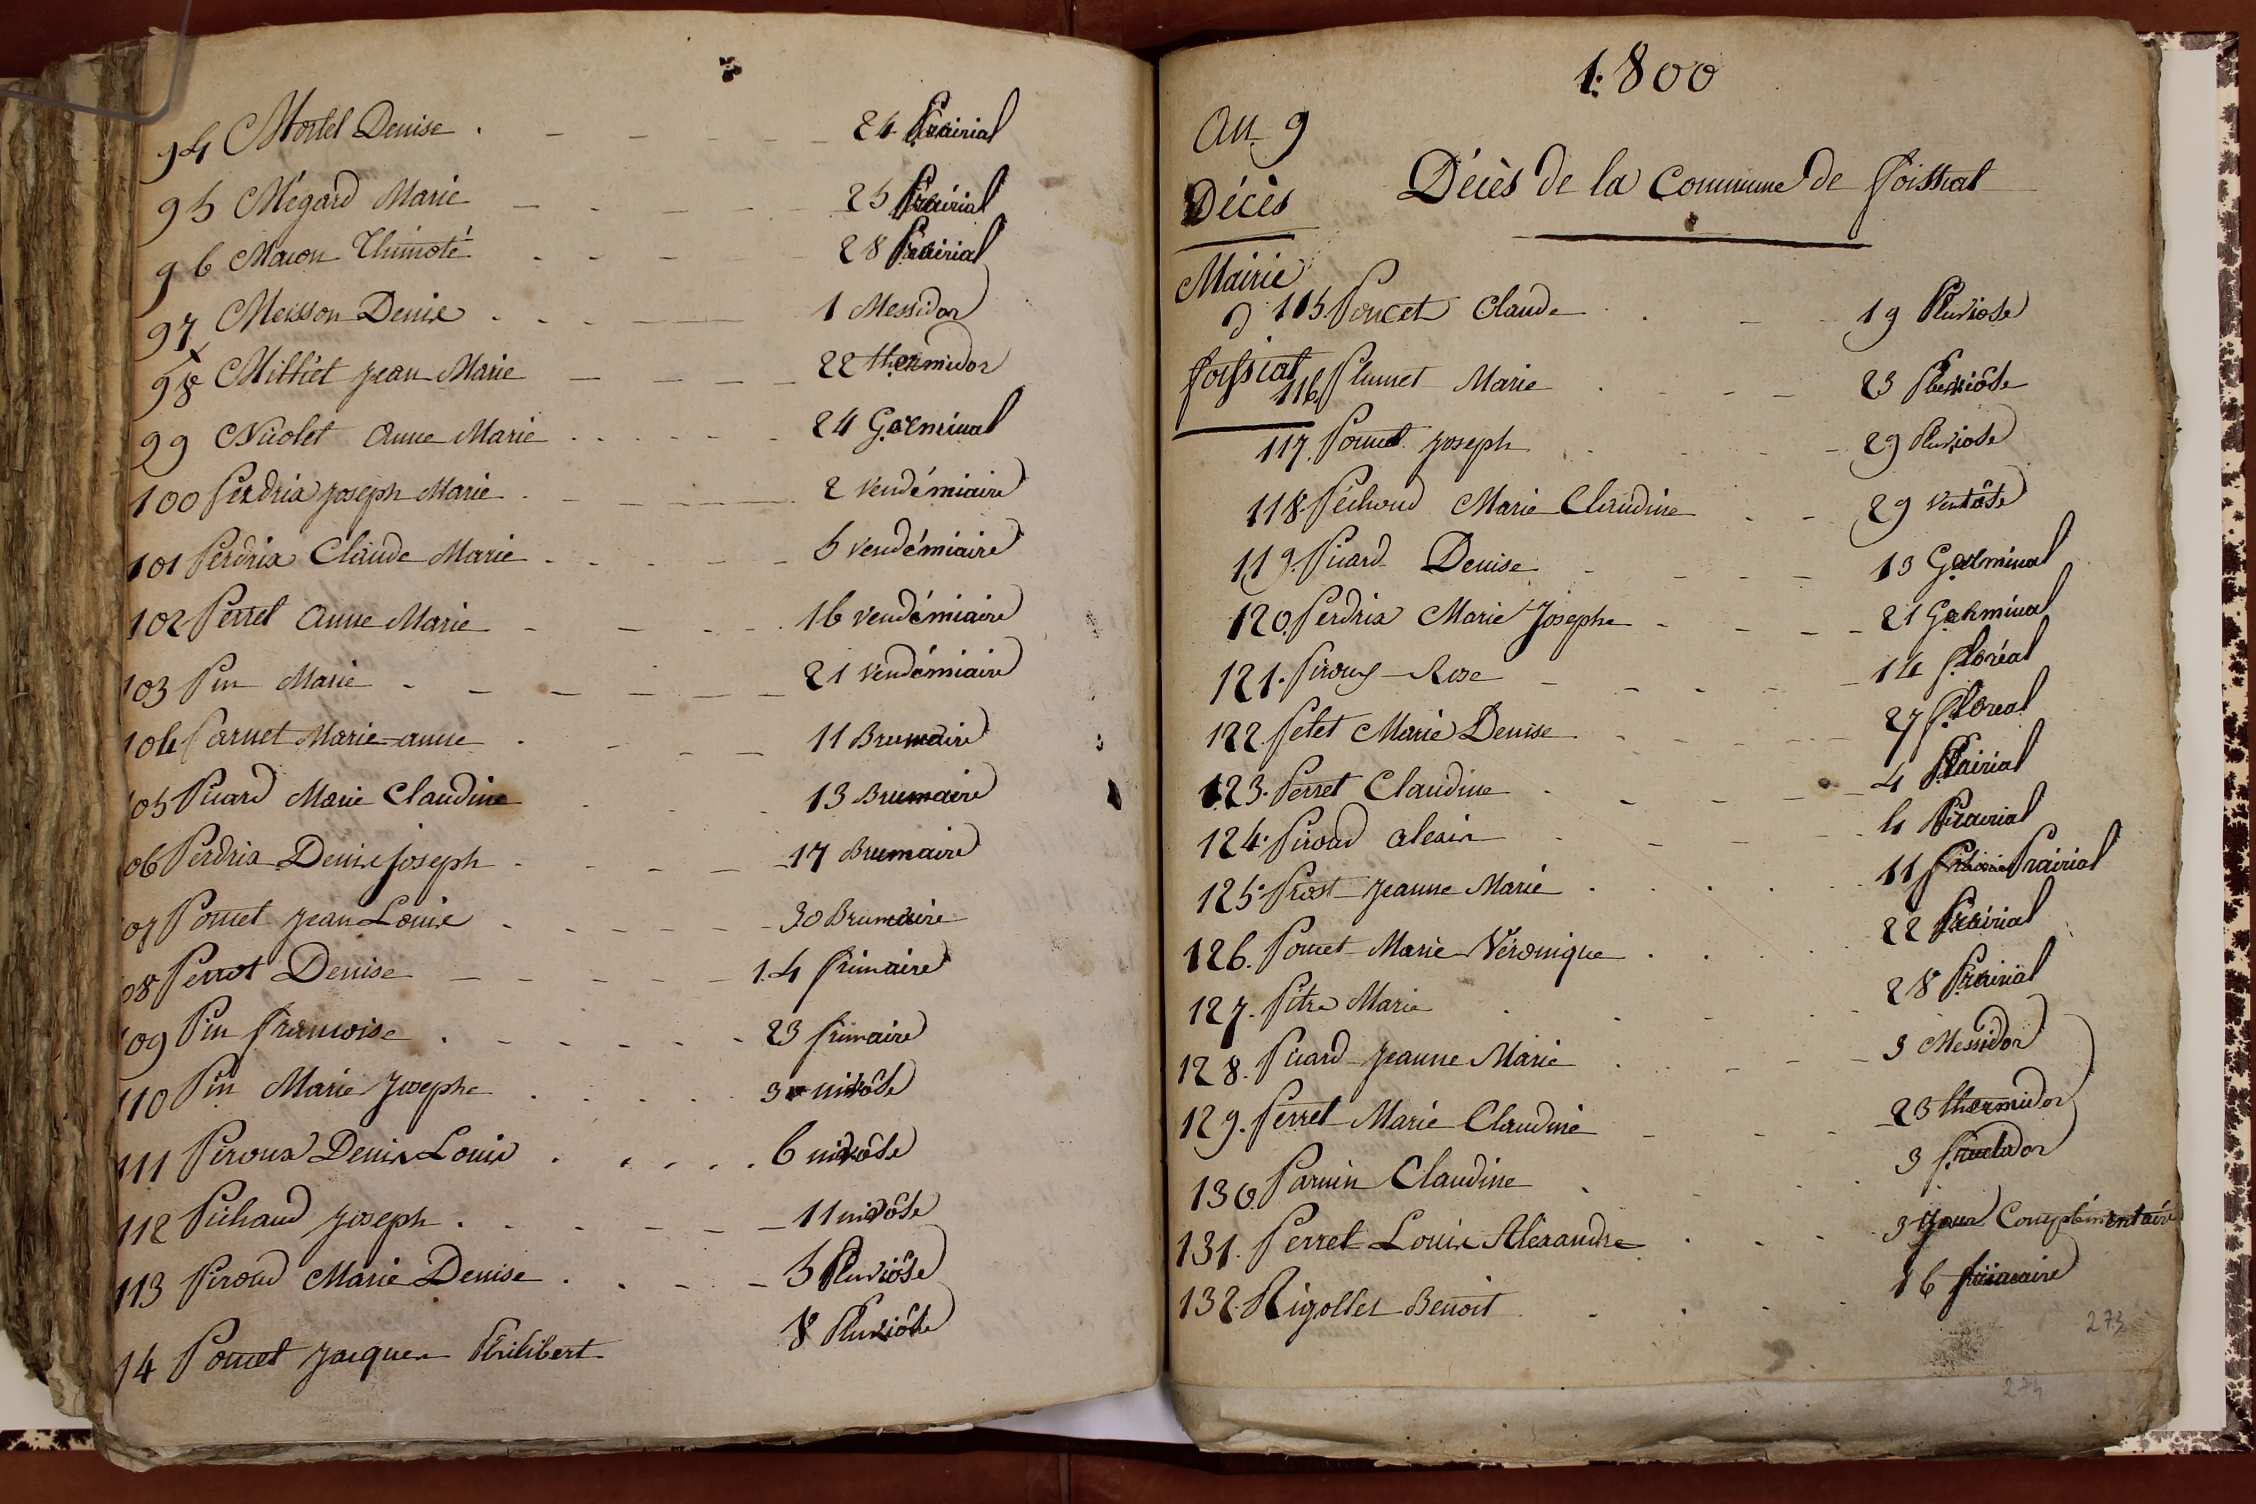 94 Mortel Denise 24 Prairial
95 Mégard Marie 25 Prairial
96 Macon Thimoté 28 Prairial
97 Moisson Denis 1 Messidor
98 Milliet jean Marie 22 thermidor
99 Nicolet Anne Marie 24 Germinal
100 Perdrix joseph Marie 2 vendémiaire
101 Perdrix Claude Marie 5 vendémiaire
102 Perret Anne Marie 16 vendémiaire
103 Pin Marie 21 vendémiaire
104 Marie anne 11 Brumaire
105 Picard Marie Claudine 13 Brumaire
06 Perdrix Denis joseph 17 Brumaire
07 Poncet jean Louis 30 Brumaire
08 Perrot Denise 14 frimaire
109 Pin francoise 23 frimaire
110 Pin Marie Josephe 3 nivôse
111 Piroux Denis Louis 6 nivôse
112 Pichaud joseph 11 nivôse
113 Piroud Marie Denise 5 Pluviôse
14 Poncet jacques Philibert 8 Pluviôse
1800
An 9
Décès
Décès de la Commune de foissiat
Mairie
d
115 Poncet Claude 19 Pluviose
foissiat
116 Plumet Marie 23 Pluviôse
117. Poncet joseph 29 Pluviose
118. Péchoud Marie Claudine 29 ventôse
119. Picard Denise 13 Germinal
120. Perdrix Marie Josephe 21 Germinal
121. Rose 14 floréal
122. Petet Marie Denise 27 floreal
123. Perret Claudine 4 Prairial
124. Piroud alexis 4 Prairial
125. Prost jeanne Marie 11 Prairial
126. Poncet Marie Véronique 22 Prairial
127. Pitre Marie 28 Prairial
128. Picard jeanne Marie 3 Messidor
129. Perret Marie Claudine 23 thermidor
130. Claudine 3 fructidor
131. Perret Louis Alexandre 3 jour Complémentaire
132. Rigollet Benoit 16 frimaire
273
274